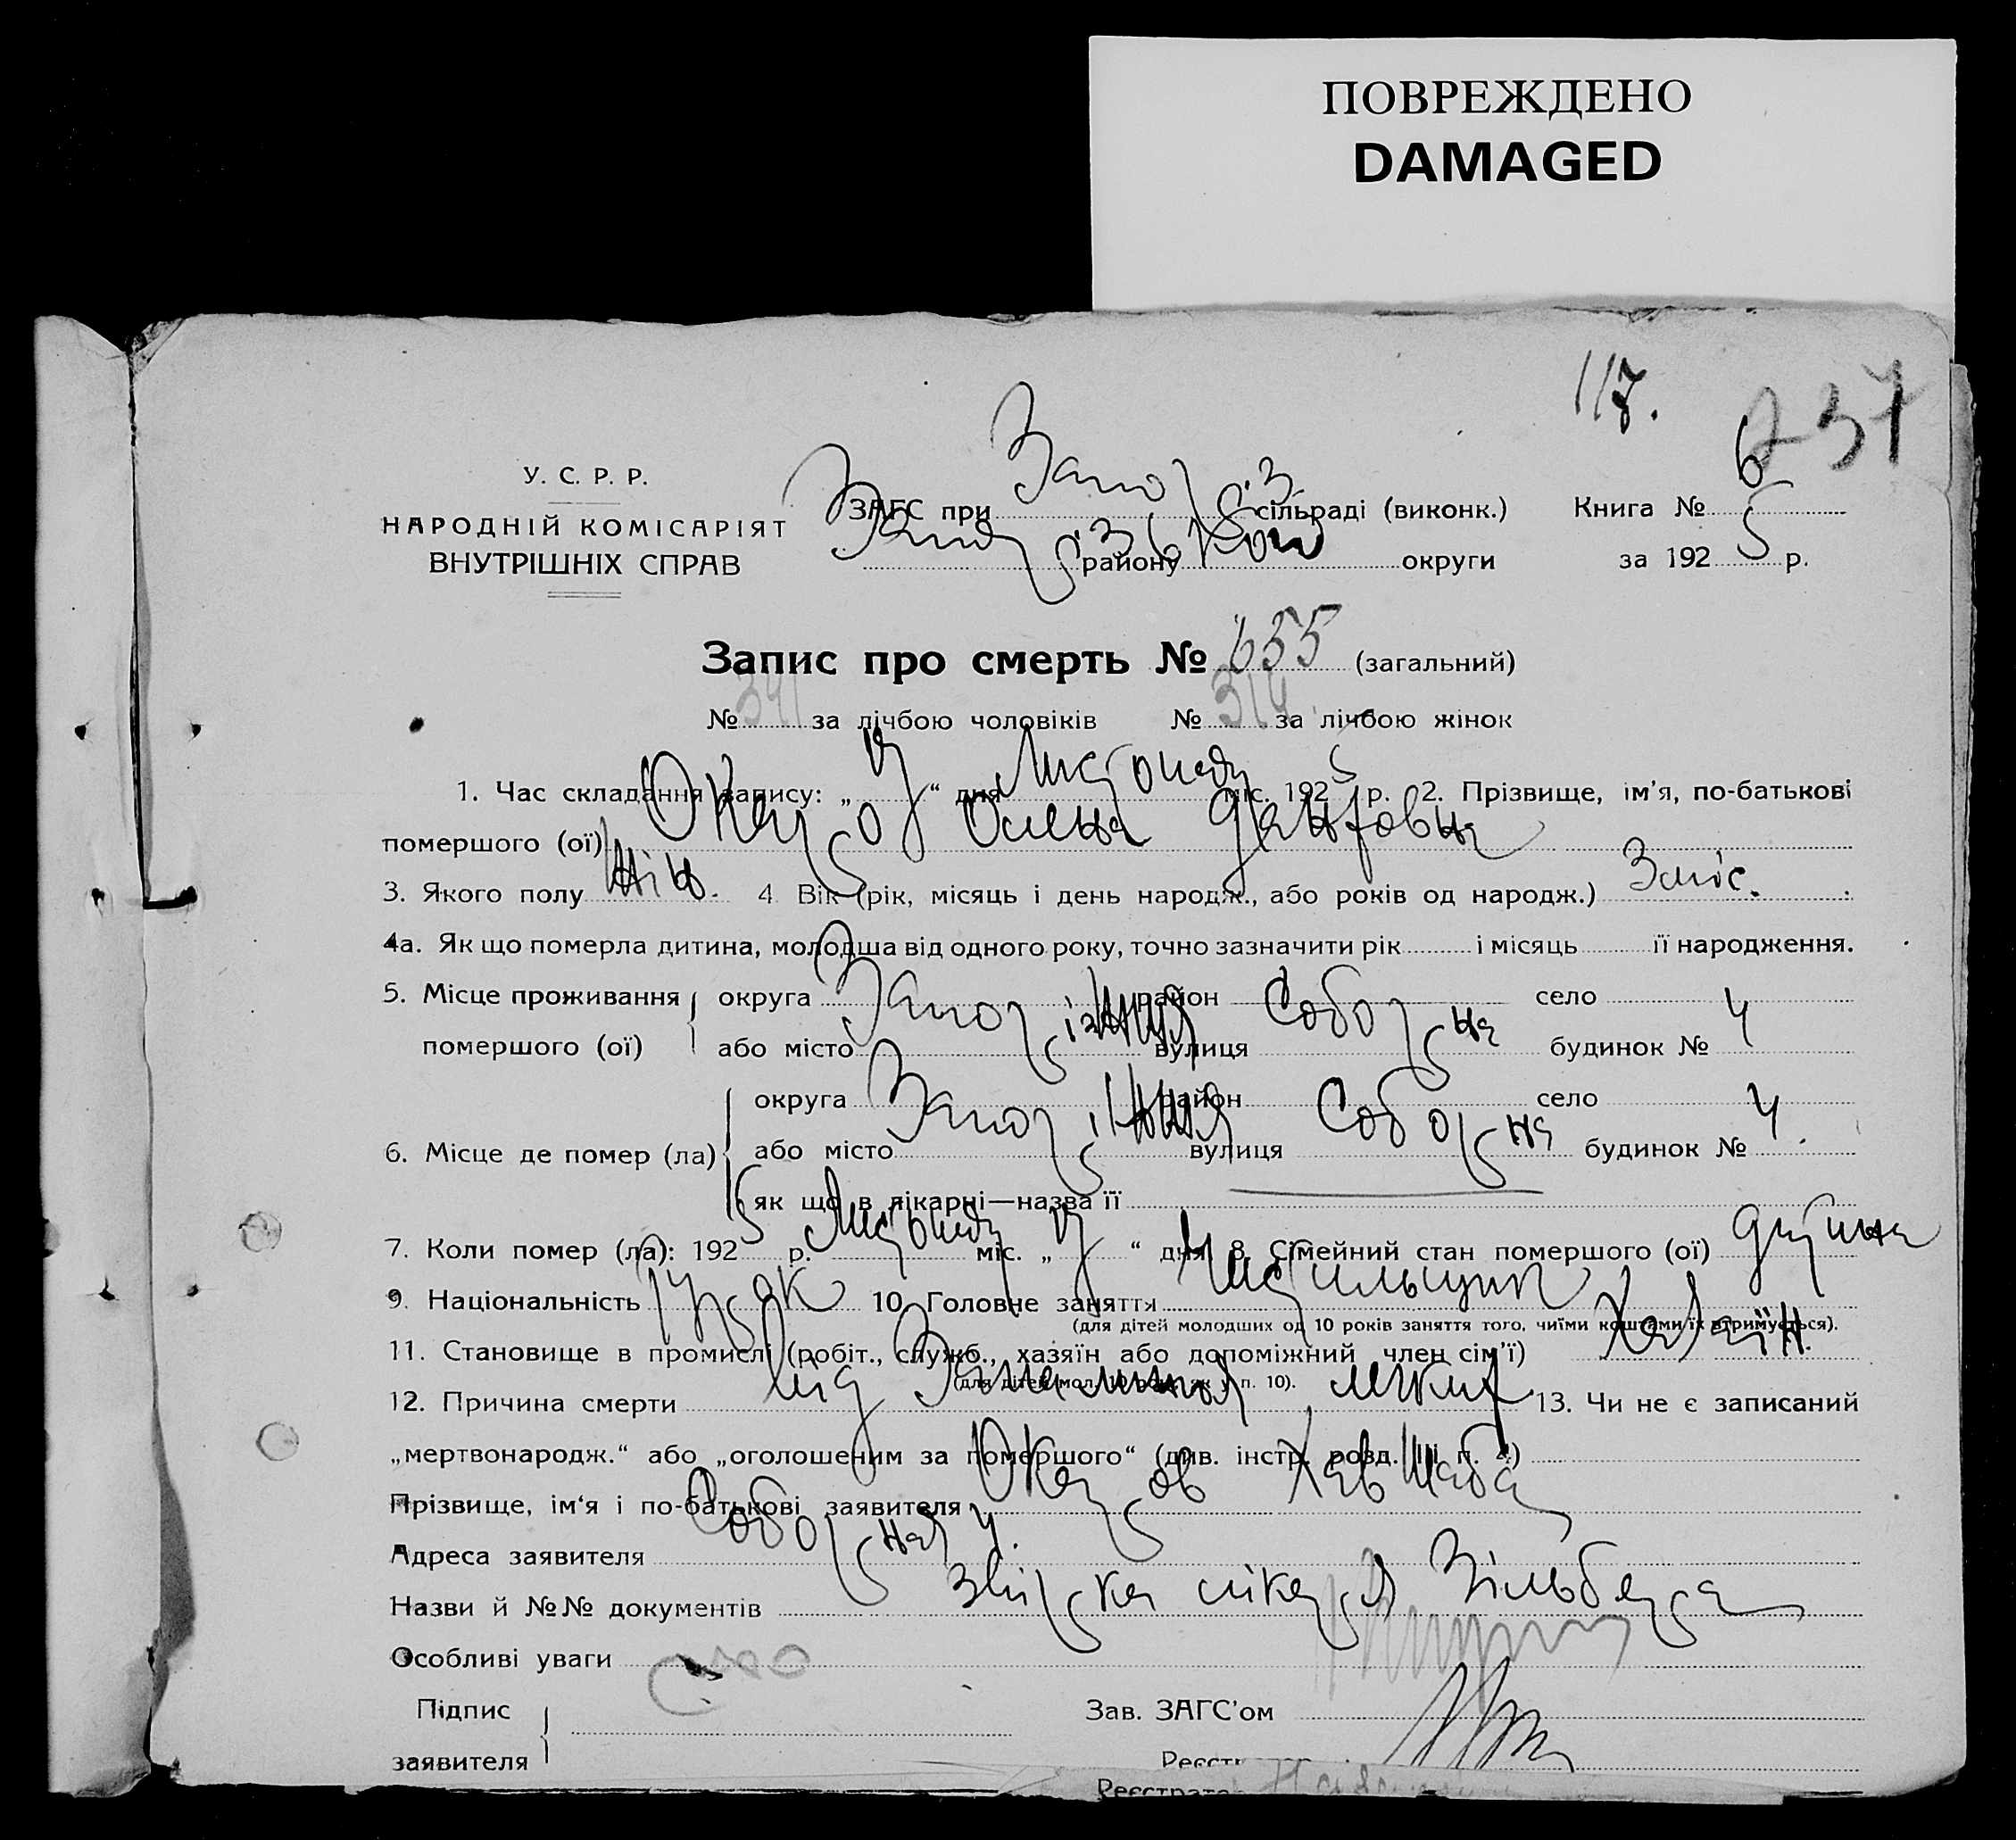 ПОВРЕЖДЕНО
DAMAGED
117.
237
У. С. Р. Р.
НАРОДНІЙ КОМІСАРІЯТ
ВНУТРІШНІХ СПРАВ
ЗАГС при Запоріз. сільраді (виконк.) Книга № 6
Запорізького району округи за 1925 р.
Запис про смерть № 655 (загальний)
№ 341 за лічбою чоловіків № 314 за лічбою жінок
1. Час складання запису: „ “ дня Листопада міс. 1925 р. 2. Прізвище, ім’я, по-батькові
помершого (ої) Олена
3. Якого полу жін. 4 Вік (рік, місяць і день народж., або років од народж.) 3 міс.
4а. Як що померла дитина, молодша від одного року, точно зазначити рік і місяць її народження.
5. Місце проживання округа район село
помершого (ої) або місто Запоріжжя вулиця Соборна будинок № 4
округа район село
6. Місце де помер (ла) або місто Запоріжжя вулиця Соборна будинок № 4.
як що в лікарні—назва її
7. Коли помер (ла): 1925 р. Листопада міс. „ “ дня 8. Сімейний стан помершого (ої) дитина
9. Національність 10. Головне заняття Чистильщик
(для дітей молодших од 10 років заняття того, чиїми коштами їх втримується).
11. Становище в промислі (робіт., служб., хазяїн або допоміжний член сім’ї) Хазяїн.
(для дітей мол. 10 років як у п. 10).
12. Причина смерти від Запалення легких 13. Чи не є записаний
„мертвонародж.“ або „оголошеним за помершого“ (див. інстр. розд. п. 4)
Прізвище, ім‘я і по-батькові заявителя
Адреса заявителя Соборна 4.
Назви й №№ документів лікаря Зільбера
Особливі уваги
Підпис
заявителя
Зав. ЗАГС’ом